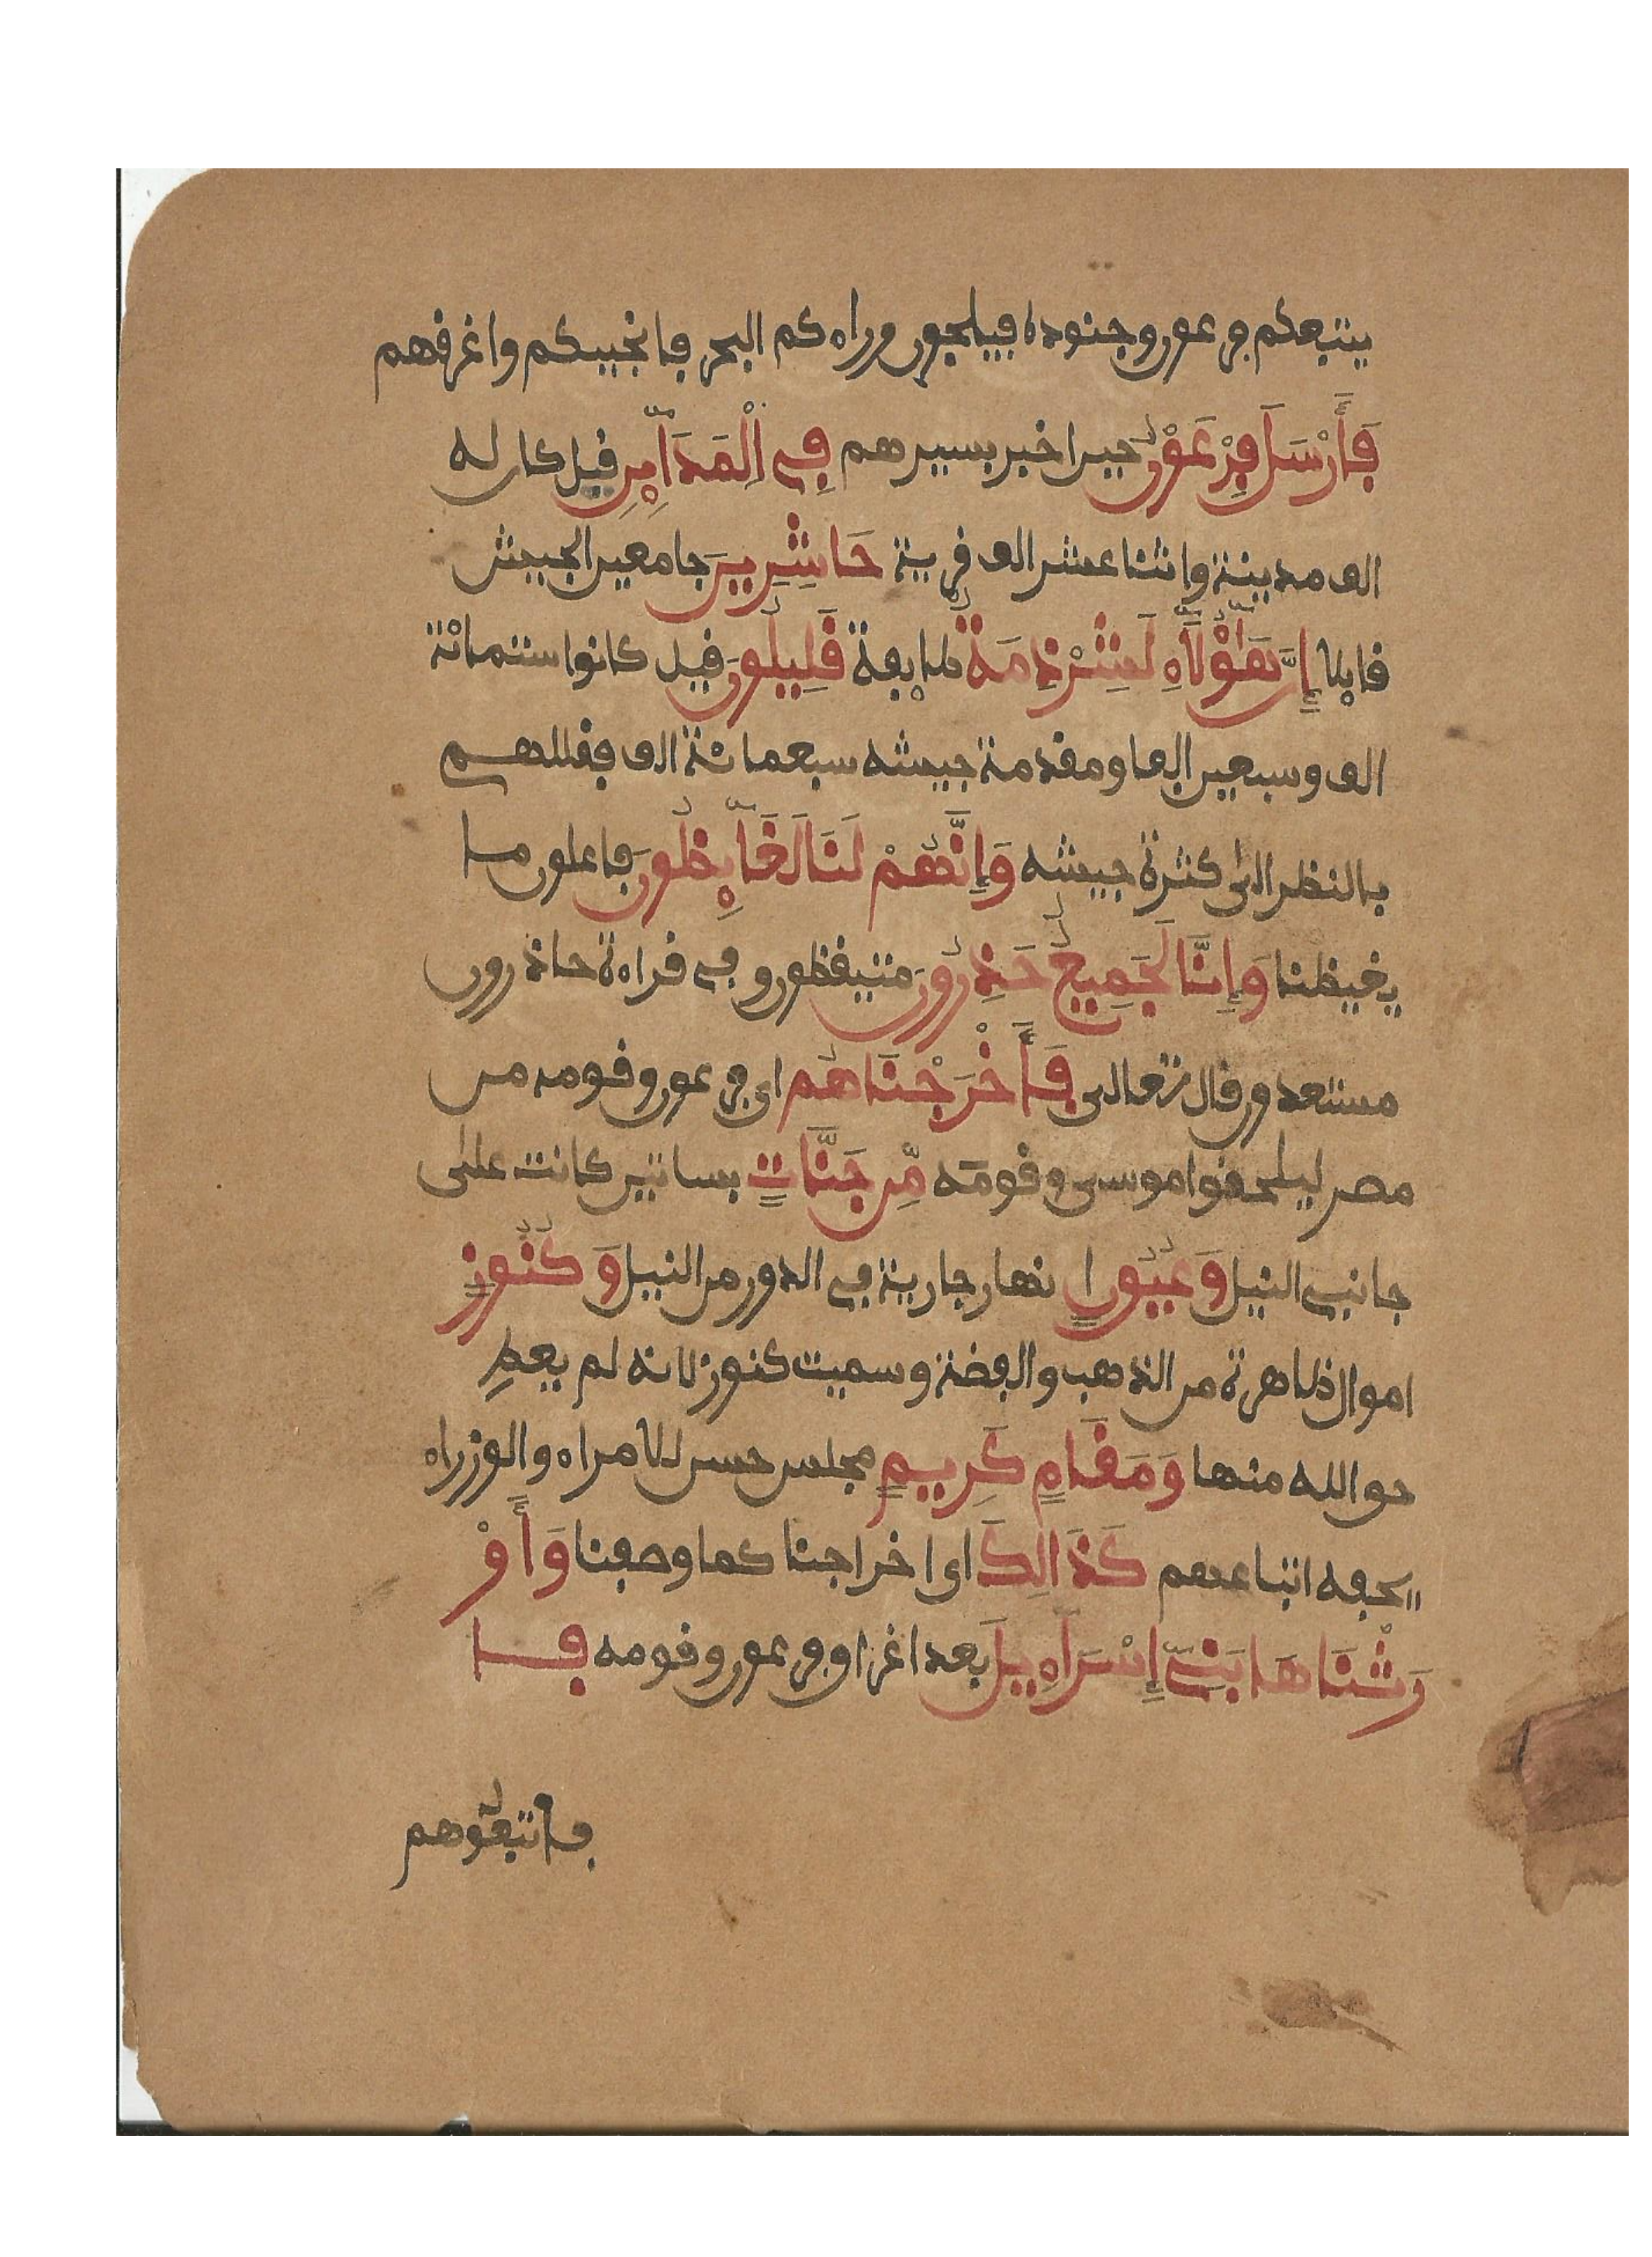 يتبعكم فرعون وجنوده فيلجون وراءكم البحر فانجيكم واغرقهم
فَأَرْسَلَ فِرْعَوْنُ حين اخبر بسيرهم فِي اِلْمَدَآئِنِ قيل كان له
الف مدينة واثنا عشر الف قرية حَاشِرِينَ جامعين الجيش
قايلا إِنَّ هَٰٓؤُلَآءِ لَشِرْذِمَةٌ طايفة قَلِيلُونَ قيل كانوا ستمائة
الف وسبعين الفا ومقدمة جيشه سبعمائة الف فقللهم
بالنظر الى كثرة جيشه وَإِنَّهُمْ لَنَا لَغَآئِظُونَ فاعلون ما
يغيظنا وَإِنَّا لَجَمِيعٌ حَذِرُونَ متيقظون وفي قراءة حاذرون
مستعدون قال تعالى فَأَخْرَجْنَاهُم اي فرعون وقومه من
مصر ليلحقوا موسى وقومه مِّن جَنَّاتٍ بساتين كانت على
جانبي النيل وَعُيُونٍ انهار جارية في الدور من النيل وَكُنُوزٍ
اموال ظاهرة من الذهب والفضة وسميت كنوز لانه لم يعط
حق الله منها وَمَقَامٍ كَرِيمٍ مجلس حسن للامراء والوزراء
يحفه اتباعهم كَذَالِكَ اي اخراجنا كما وصفنا وَأَوْ
رَثْنَاهَا بَنِيٓ إِسْرَآءِيلَ بعد اغراق فرعون وقومه فا
فاتبعوهم